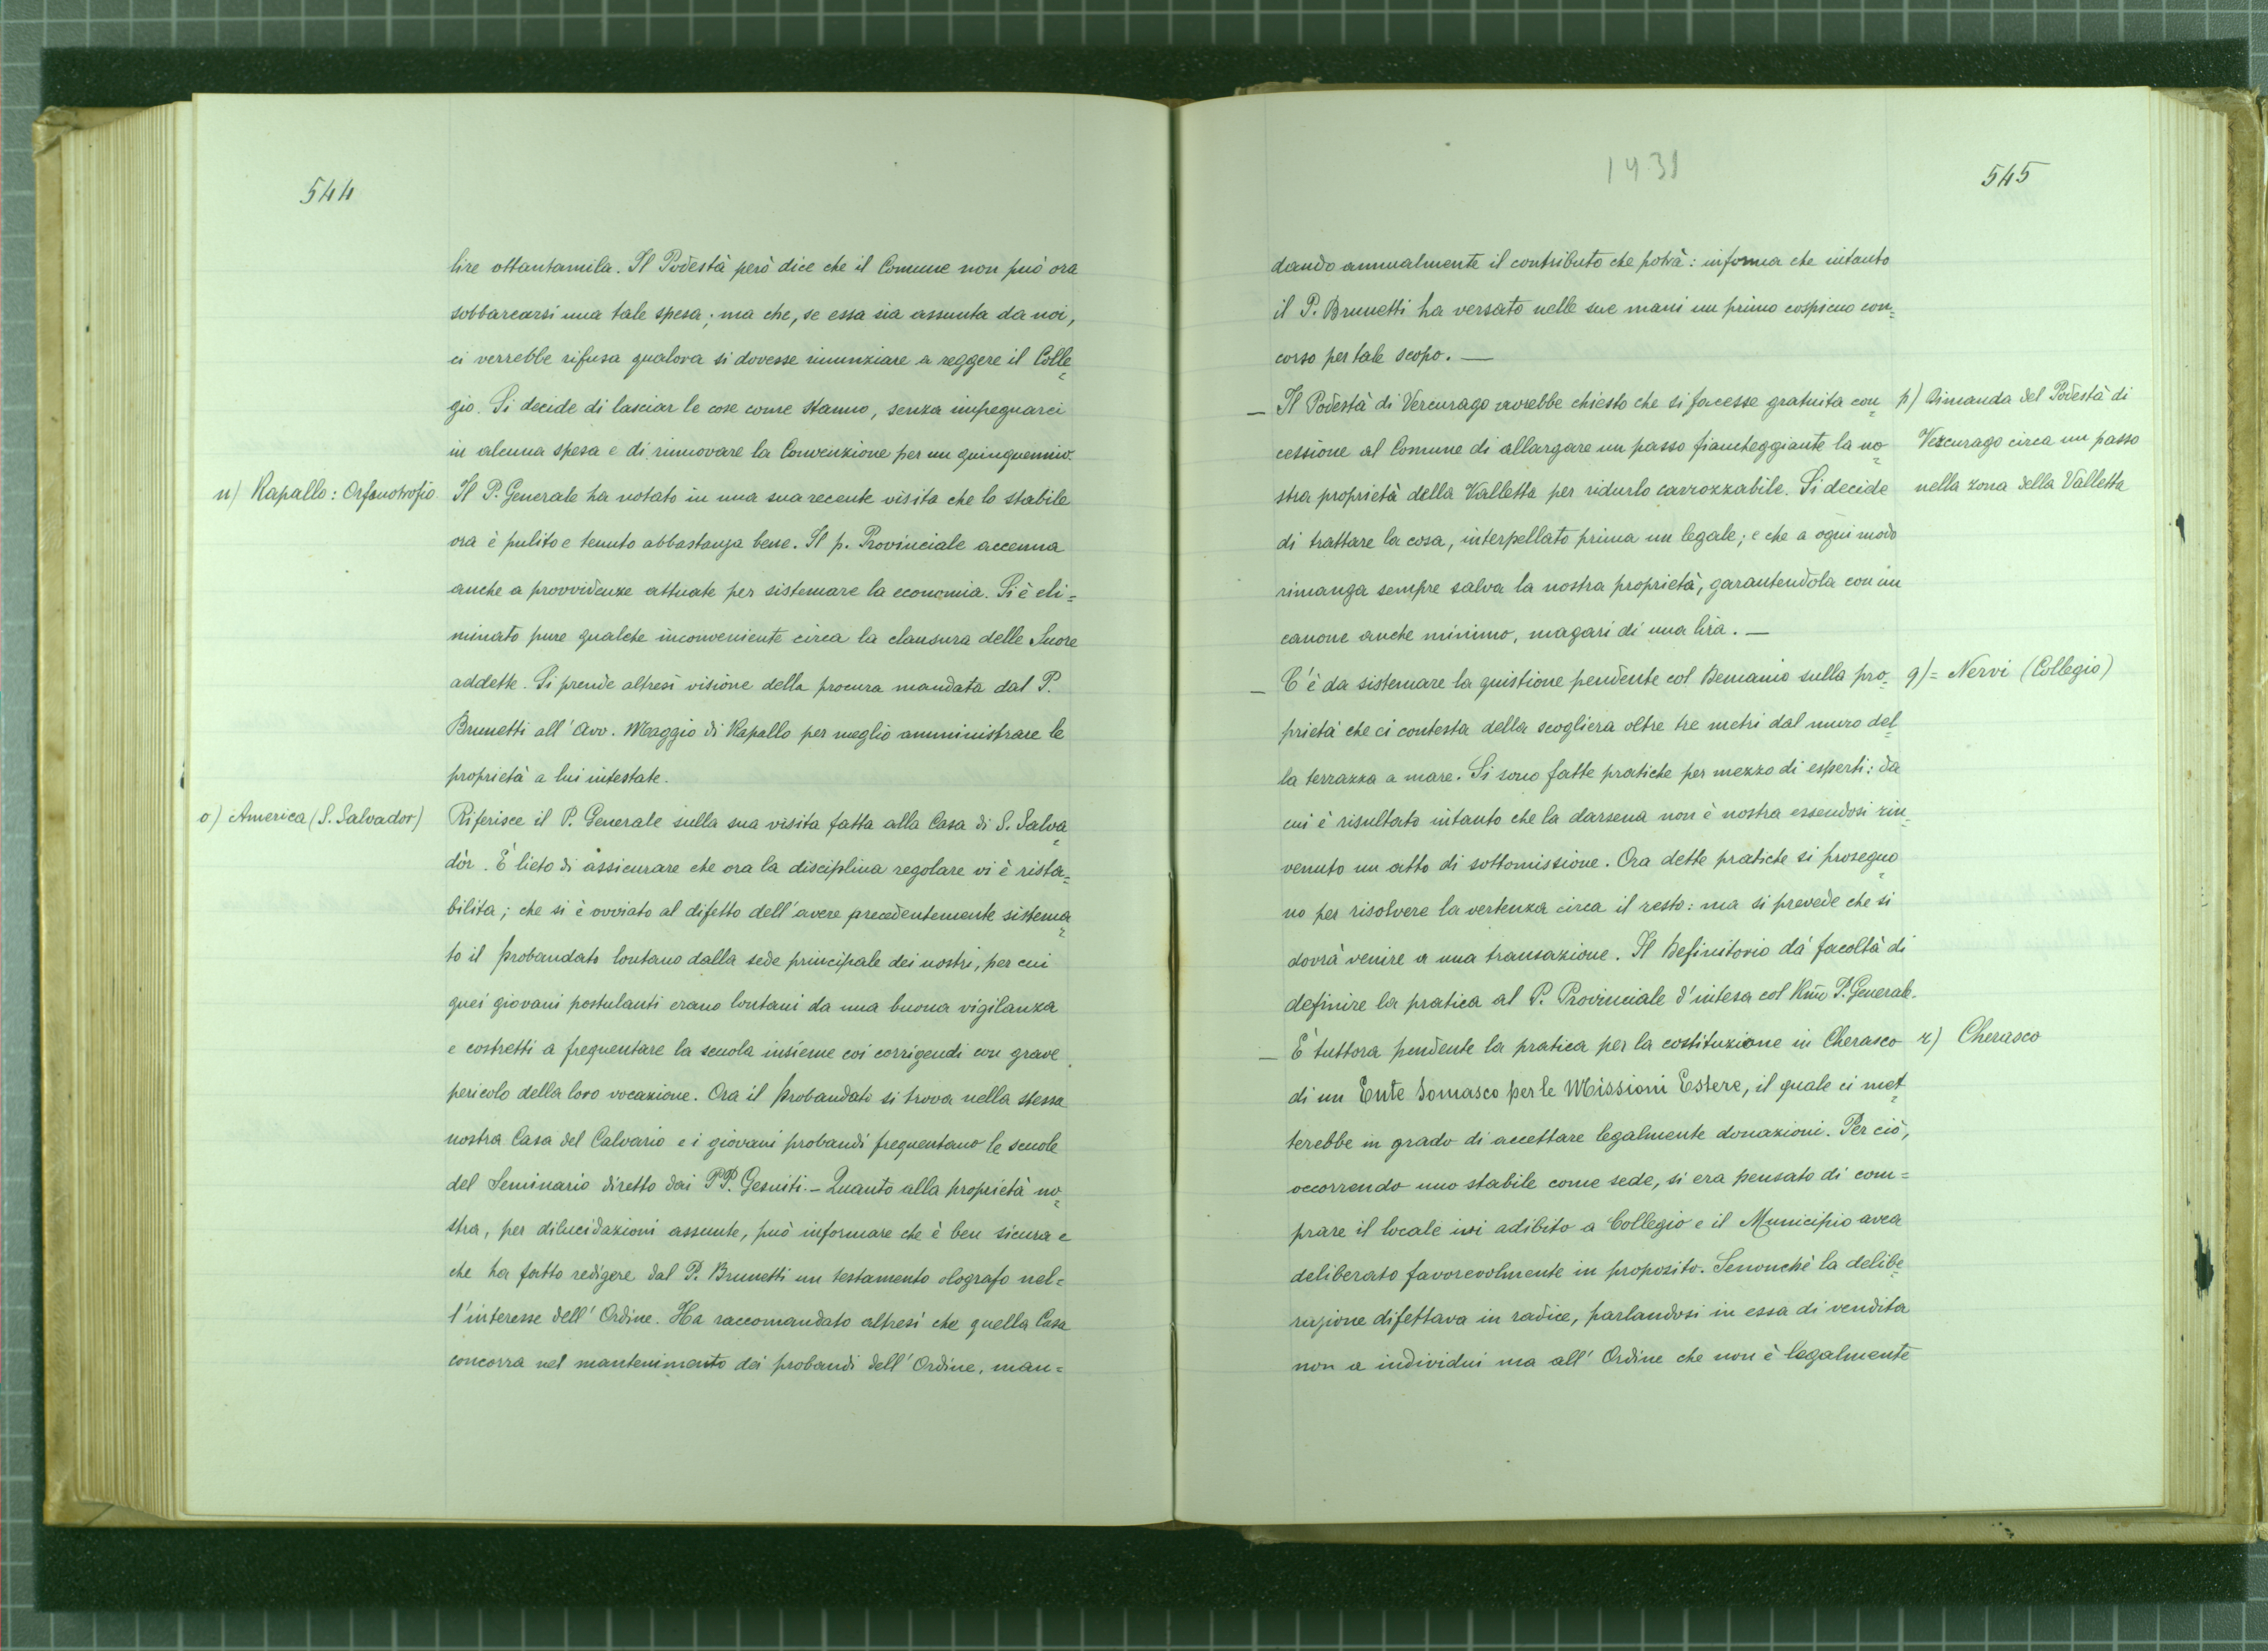 544
lire ottantamila. Il Podestà però dice che il Comune non può ora
sobbarcarsi una tale spesa; ma che, se essa sia assunta da noi,
ci verrebbe rifusa qualora si dovesse rinunziare a reggere il Colle=
gio. Si decide di lasciar le cose come stanno, senza impegnarci
in alcuna spesa e di rinnovare la Convenzione per un quinquennio.
n) Rapallo: Orfanotrofio
Il P. Generale ha notato in una sua recente visita che lo stabile
ora è pulito e tenuto abbastanza bene. Il p. Provinciale accenna
anche a provvidenze attuate per sistemare la economia. Si è eli=
minato pure qualche inconveniente circa la clausura delle Suore
addette. Si prende altresì visione della procura mandata dal P.
Brunetti all' Avv. Maggio di Rapallo per meglio amministrare le
proprietà a lui intestate.
o) America (S. Salvador)
Riferisce il P. Generale sulla sua visita fatta alla Casa di S. Salva=
dòr. È lieto di assicurare che ora la disciplina regolare vi è rista=
bilita; che si è ovviato al difetto dell'avere precedentemente sistema=
to il probandato lontano dalla sede principale dei nostri, per cui
quei giovani postulanti erano lontani da una buona vigilanza
e costretti a frequentare la scuola insieme coi corrigendi con grave
pericolo della loro vocazione. Ora il probandato si trova nella stessa
nostra Casa del Calvario e i giovani probandi frequentano le scuole
del Seminario diretto dai PP. Gesuiti. - Quanto alla proprietà no=
stra, per dilucidazioni assunte, può informare che è ben sicura e
che ha fatto redigere dal P. Brunetti un testamento olografo nel=
l'interesse dell' Ordine. Ha raccomandato altresì che quella Casa
concorra nel mantenimento dei probandi dell' Ordine, man=
1931
545
dando annualmente il contributo che potrà: informa che intanto
il P. Brunetti ha versato nelle sue mani un primo cospicuo con=
corso per tale scopo. —
— Il Podestà di Vercurago avrebbe chiesto che si facesse gratuita con=
cessione al Comune di allargare un passo fiancheggiante la no=
stra proprietà della Valletta per ridurlo carrozzabile. Si decide
di trattare la cosa, interpellato prima un legale; e che a ogni modo
rimanga sempre salva la nostra proprietà, garantendola con un
canone anche minimo, magari di una lira. —
p) Dimanda del Podestà di
Vercurago circa un passo
nella zona della Valletta
— C'è da sistemare la quistione pendente col Demanio sulla pro=
prietà che ci contesta della scogliera oltre tre metri dal muro del=
la terrazza a mare. Si sono fatte pratiche per mezzo di esperti: da
cui è risultato intanto che la darsena non è nostra essendosi rin=
venuto un atto di sottomissione. Ora dette pratiche si proseguo=
no per risolvere la vertenza circa il resto: ma si prevede che si
dovrà venire a una transazione. Il Definitorio dà facoltà di
definire la pratica al P. Provinciale d'intesa col Rmo P. Generale.
q)= Nervi (Collegio)
— È tuttora pendente la pratica per la costituzione in Cherasco
di un Ente Somasco per le Missioni Estere, il quale ci met=
terebbe in grado di accettare legalmente donazioni. Per ciò,
occorrendo uno stabile come sede, si era pensato di com=
prare il locale ivi adibito a Collegio e il Municipio avea
deliberato favorevolmente in proposito. Senonchè la delibe=
razione difettava in radice, parlandosi in essa di vendita
non a individui ma all' Ordine che non è legalmente
r) Cherasco